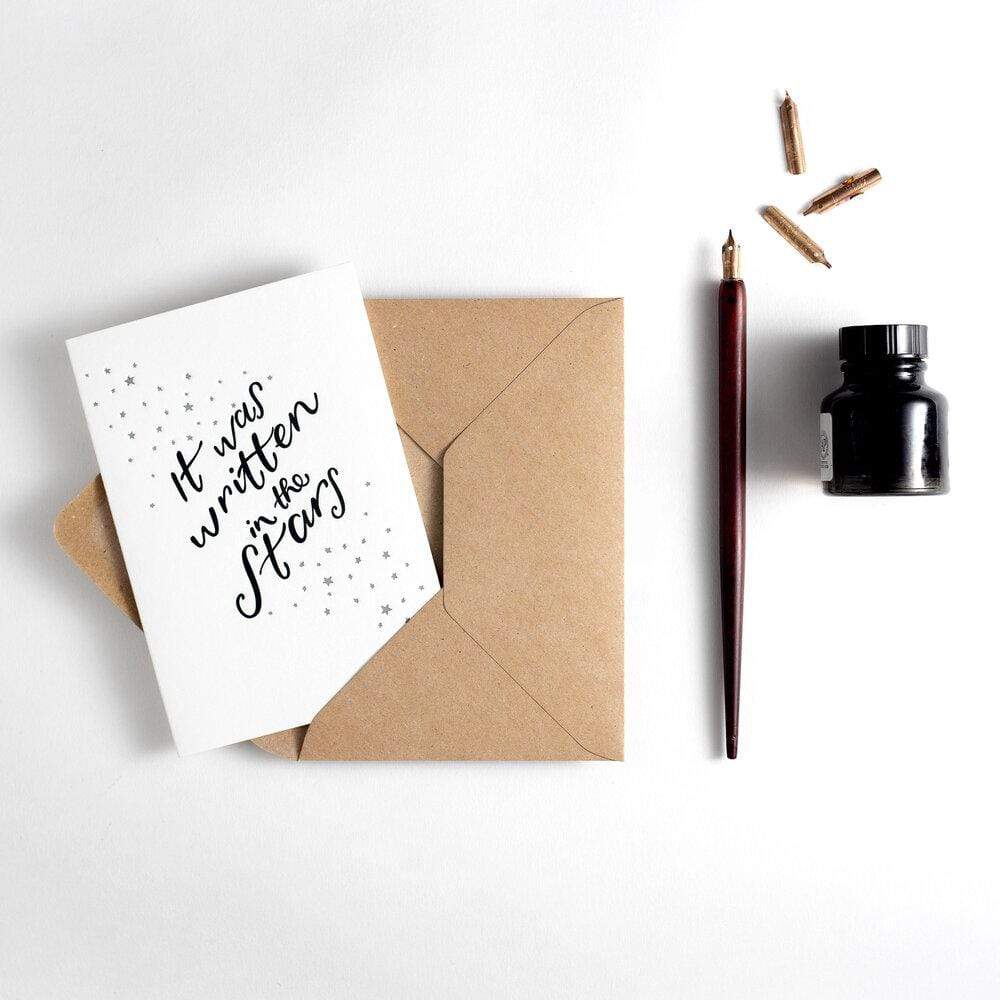 It was
written
in the
Stars